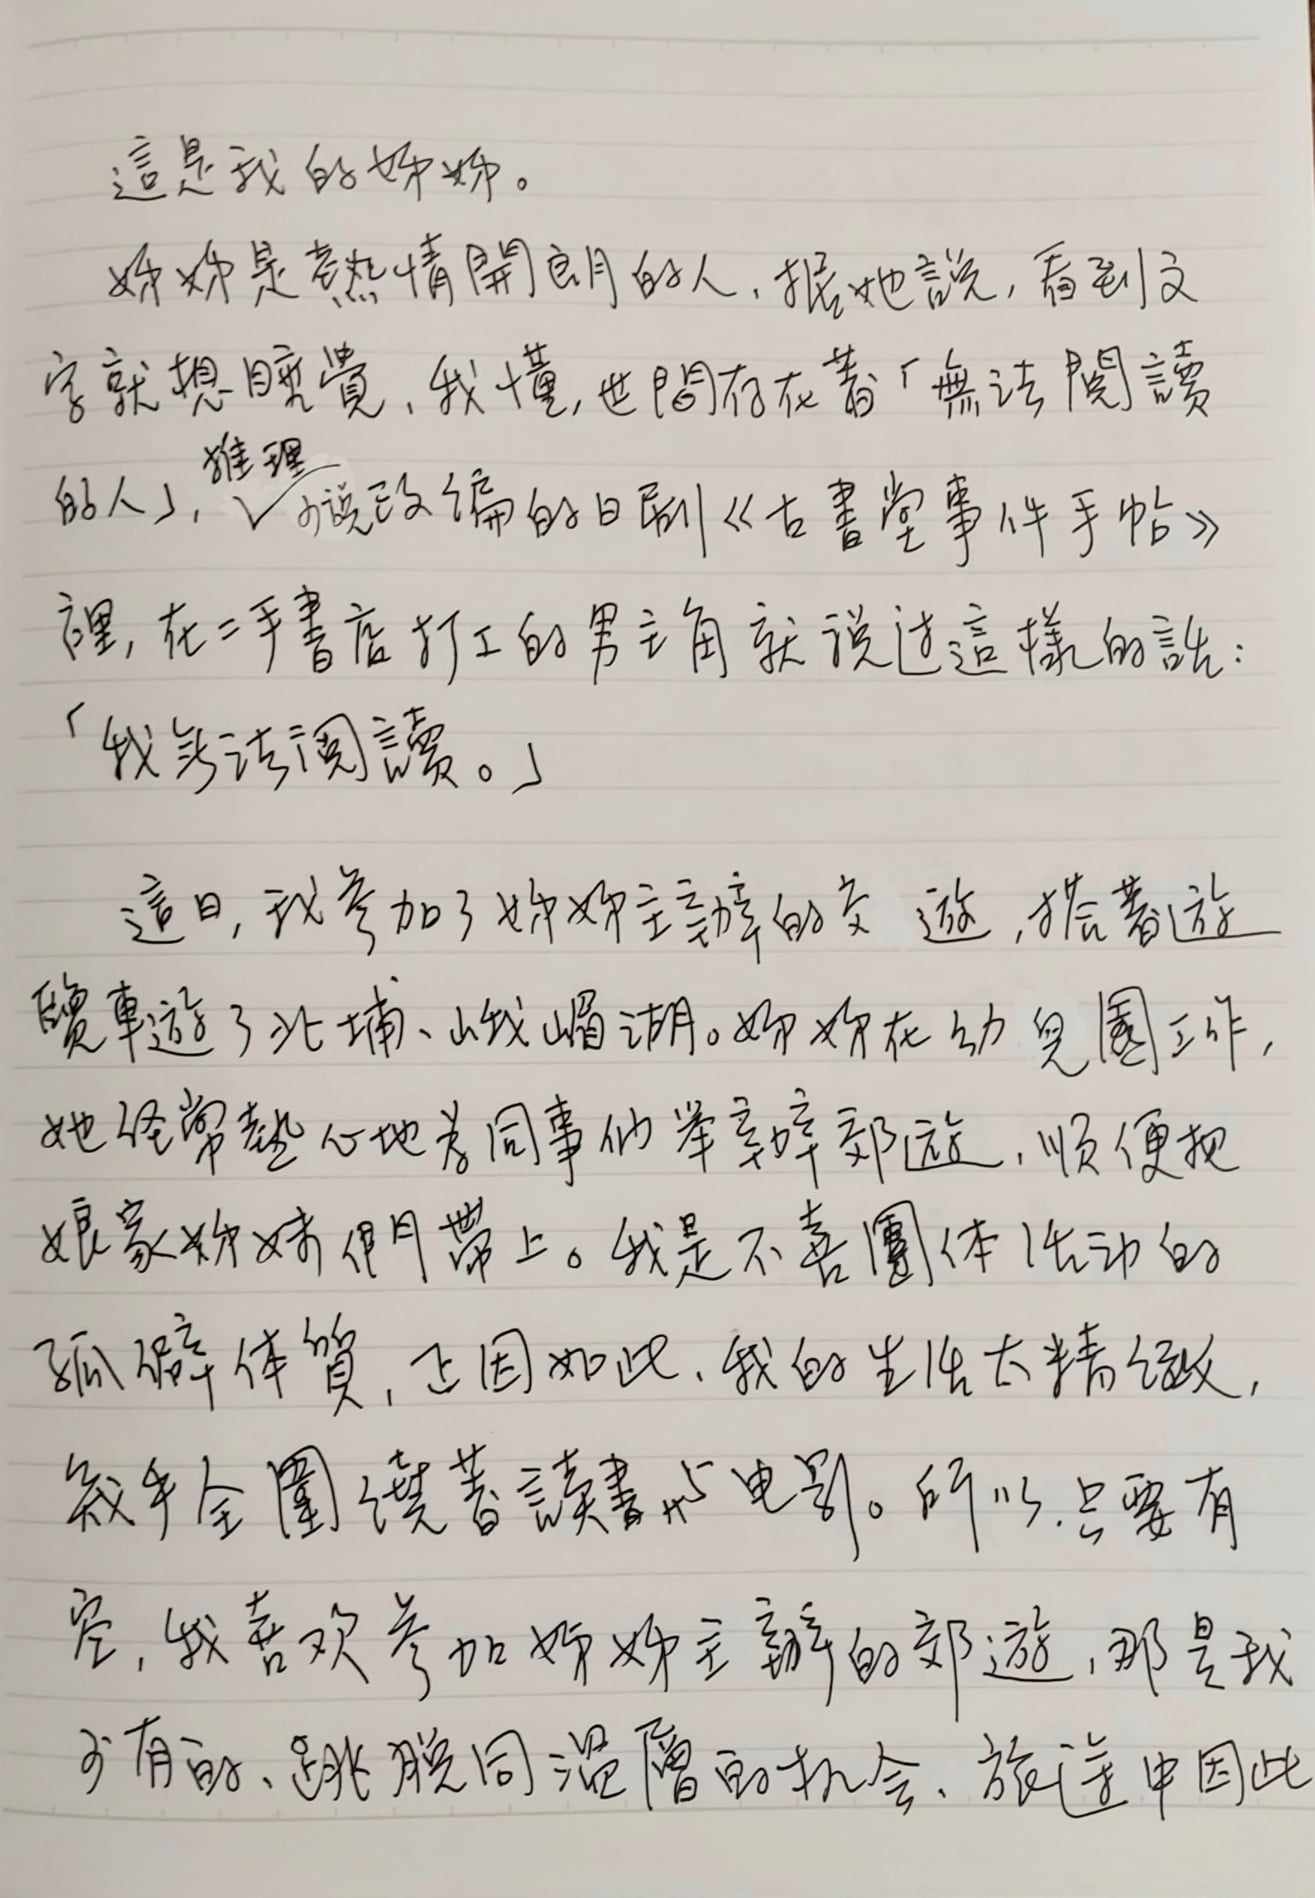 這是我的姊姊。
姊姊是熱情開朗的人，據她說，看到文
字就想睡覺，我懂，世間存在著「無法閱讀
的人」，推理小說改編的日劇《古書堂事件手帖》
裡，在二手書店打工的男主角就說过這樣的話：
「我无法閱讀。」
這日，我參加了姊姊主辦的交遊，搭著遊
覽車遊了北埔、峨嵋湖。姊姊在幼兒園工作，
她经常熱心地为同事们举辦郊遊，順便把
娘家姊妹們帶上。我是不喜團体活动的
孤僻体質，正因如此，我的生活太精緻，
幾乎全圍繞著讀書与电影。所以，只要有
空，我喜欢參加姊姊主辦的郊遊，那是我
少有的、跳脫同溫層的机会，旅途中因此